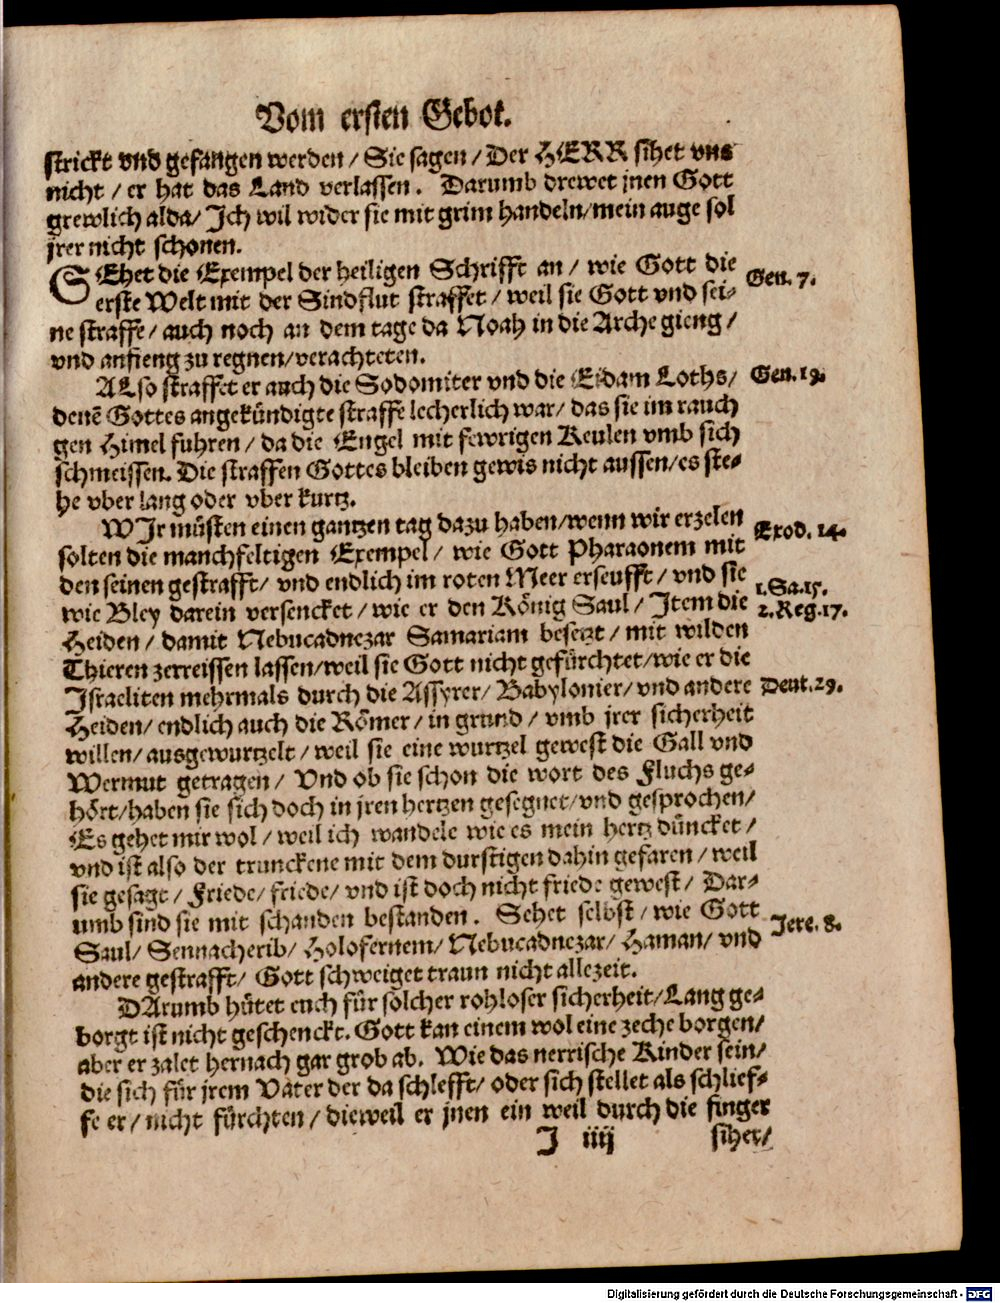 Vom ersten Gebot.
strickt vnd gefangen werden / Sie sagen / Der HERR sihet vns
nicht / er hat das Land verlassen. Darumb drewet jnen Gott
grewlich alda / Jch wil wider sie mit grim handeln / mein auge sol
jrer nicht schonen.
SEhet die Exempel der heiligen Schrifft an / wie Gott die Gen. 7.
erste Welt mit der Sindflut straffet / weil sie Gott vnd sei-
ne straffe / auch noch an dem tage da Noah in die Arche gieng /
vnd anfieng zu regnen / verachteten.
ALso straffet er auch die Sodomiter vnd die Eidam Loths / Gen. 19.
denẽ Gottes angekündigte straffe lecherlich war / das sie im rauch
gen Himel fuhren / da die Engel mit fewrigen Keulen vmb sich
schmeissen. Die straffen Gottes bleiben gewis nicht aussen / es ste-
he vber lang oder vber kurtz.
WJr müsten einen gantzen tag dazu haben / wenn wir erzelen Exod. 14.
solten die manchfeltigen Exempel / wie Gott Pharaonem mit
den seinen gestrafft / vnd endlich im roten Meer erseufft / vnd sie 1. Sa. 15.
wie Bley darein versencket / wie er den König Saul / Jtem die 2. Reg. 17.
Heiden / damit Nebucadnezar Samariam besetzt / mit wilden
Thieren zerreissen lassen / weil sie Gott nicht gefürchtet / wie er die
Jsraeliten mehrmals durch die Assyrer / Babylonier / vnd andere Deut. 29.
Heiden / endlich auch die Römer / in grund / vmb jrer sicherheit
willen / ausgewurtzelt / weil sie eine wurtzel gewest die Gall vnd
Wermut getragen / Vnd ob sie schon die wort des Fluchs ge-
hört / haben sie sich doch in jren hertzen gesegnet / vnd gesprochen /
Es gehet mir wol / weil ich wandele wie es mein hertz düncket /
vnd ist also der trunckene mit dem durstigen dahin gefaren / weil
sie gesagt / Friede / friede / vnd ist doch nicht friede gewest / Dar-
umb sind sie mit schanden bestanden. Sehet selbst / wie Gott Jere. 8.
Saul / Sennacherib / Holofernem / Nebucadnezar / Haman / vnd
andere gestrafft / Gott schweiget traun nicht allezeit.
DArumb hütet euch für solcher rohloser sicherheit / Lang ge-
borgt ist nicht geschenckt. Gott kan einem wol eine zeche borgen /
aber er zalet hernach gar grob ab. Wie das nerrische Kinder sein /
die sich für jrem Vater der da schlefft / oder sich stellet als schlief-
fe er / nicht fürchten / dieweil er jnen ein weil durch die finger
J iiij sihet /
Digitalisierung gefördert durch die Deutsche Forschungsgemeinschaft - DFG